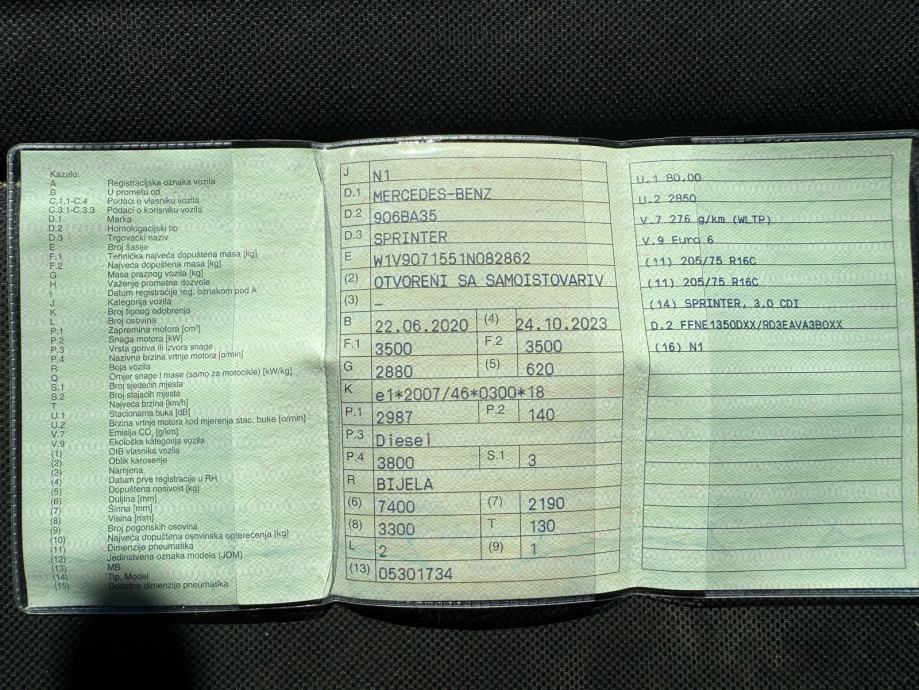 Kazalo:
A Registracijska oznaka vozila
B U prometu od
C.1.1-C.4 Podaci o vlasniku vozila
C.3.1-C.3.3 Podaci o korisniku vozila
D.1 Marka
D.2 Homologacijski tip
D.3 Trgovački naziv
E Broj šasije
F.1 Tehnička najveća dopuštena masa [kg]
F.2 Najveća dopuštena masa [kg]
G Masa praznog vozila [kg]
H Važenje prometne dozvole
I Datum registracije reg. oznakom pod A
J Kategorija vozila
K Broj tipnog odobrenja
L Broj osovina
P.1 Zapremina motora [cm³]
P.2 Snaga motora [kW]
P.3 Vrsta goriva ili izvora snage
P.4 Nazivna brzina vrtnje motora [o/min]
R Boja vozila
Q Omjer snage i mase (samo za motocikle) [kW/kg]
S.1 Broj sjedećih mjesta
S.2 Broj stajaćih mjesta
T Najveća brzina [km/h]
U.1 Stacionarna buka [dB]
U.2 Brzina vrtnje motora kod mjerenja stac. buke [o/min]
V.7 Emisija CO₂ [g/km]
V.9 Ekološka kategorija vozila
(1) OIB vlasnika vozila
(2) Oblik karoserije
(3) Namjena
(4) Datum prve registracije u RH
(5) Dopuštena nosivost [kg]
(6) Duljina [mm]
(7) Širina [mm]
(8) Visina [mm]
(9) Broj pogonskih osovina
(10) Najveća dopuštena osovinska opterećenja [kg]
(11) Dimenzije pneumatika
(12) Jedinstvena oznaka modela (JOM)
(13) MB
(14) Tip, Model
(15) Dodatne dimenzije pneumatika
J N1
D.1 MERCEDES-BENZ
D.2 906BA35
D.3 SPRINTER
E W1V9071551N082862
(2) OTVORENI SA SAMOISTOVARIV
(3) –
B 22.06.2020 (4) 24.10.2023
F.1 3500 F.2 3500
G 2880 (5) 620
K e1*2007/46*0300*18
P.1 2987 P.2 140
P.3 Diesel
P.4 3800 S.1 3
R BIJELA
(6) 7400 (7) 2190
(8) 3300 T 130
L 2 (9) 1
(13) 05301734
U.1 80,00
U.2 2850
V.7 276 g/km (WLTP)
V.9 Euro 6
(11) 205/75 R16C
(11) 205/75 R16C
(14) SPRINTER, 3.0 CDI
D.2 FFNE1350DXX/RD3EAVA3BOXX
(16) N1